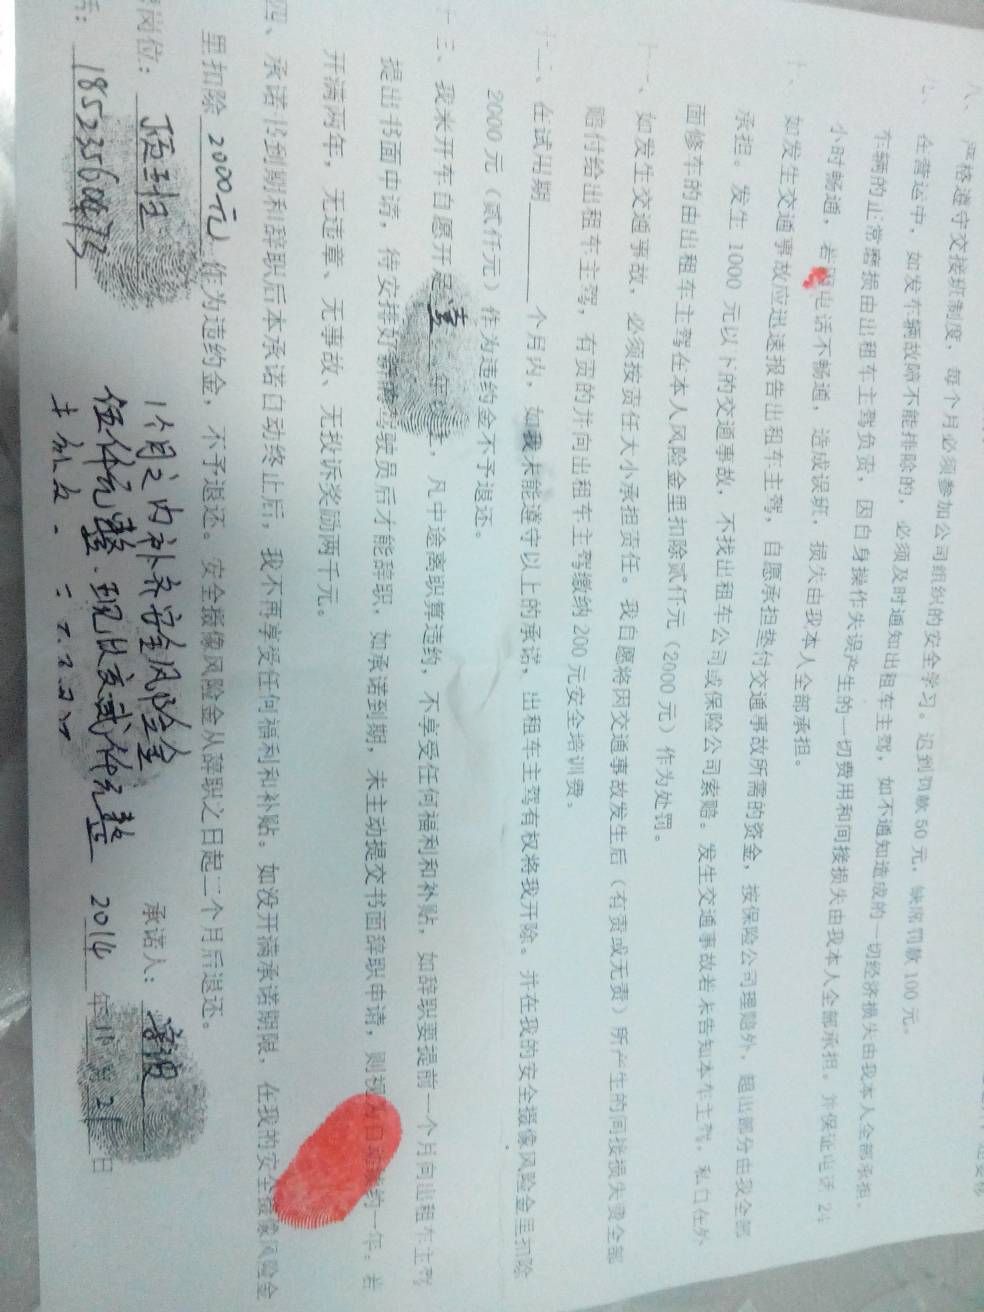 八、严格遵守交接班制度，每个月必须参加公司组织的安全学习。迟到罚款50元，缺席罚款100元。
九、在营运中，如发车辆故障不能排除的，必须及时通知出租车主驾，如不通知造成的一切经济损失由我本人全部承担。
车辆的正常磨损由出租车主驾负责，因自身操作失误产生的一切费用和间接损失由我本人全部承担。并保证电话24
小时畅通，若电话不畅通，造成误班，损失由我本人全部承担。
十、如发生交通事故应迅速报告出租车主驾，自愿承担垫付交通事故所需的资金，按保险公司理赔外，超出部分由我全部
承担。发生1000元以下的交通事故，不找出租车公司或保险公司索赔。发生交通事故若未告知本车主驾，私自在外
面修车的由出租车主驾在本人风险金里扣除贰仟元（2000元）作为处罚。
十一、如发生交通事故，必须按责任大小承担责任。我自愿将因交通事故发生后（有责或无责）所产生的间接损失费全部
赔付给出租车主驾，有责的并向出租车主驾缴纳200元安全培训费。
十二、在试用期 个月内，如我未能遵守以上的承诺，出租车主驾有权将我开除。并在我的安全摄像风险金里扣除
2000元（贰仟元）作为违约金不予退还。
十三、我来开车自愿开足壹年，凡中途离职算违约，不享受任何福利和补贴，如辞职要提前一个月向出租车主驾
提出书面申请，待安排好驾驶员后才能辞职、如承诺到期，未主动提交书面辞职申请，则视为自动续约一年。若
开满两年，无违章、无事故、无投诉奖励两千元。
四、承诺书到期和辞职后本承诺自动终止后，我不再享受任何福利和补贴。如没开满承诺期限，在我的安全摄像风险金
里扣除2000元作为违约金，不予退还。安全摄像风险金从辞职之日起二个月后退还。
岗位：顶班 1个月之内补齐安全风险金 承诺人：
18523560673 伍仟元整、现收变贰仟元整 2014年11月21日